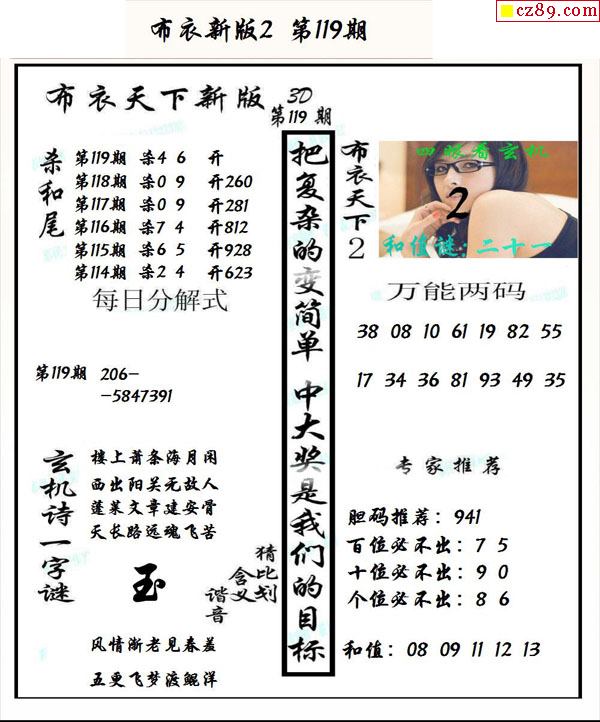 cz89.com
布衣新版2 第119期
布衣天下新版 3D
第119期
杀和尾
第119期 杀4 6 开
第118期 杀0 9 开260
第117期 杀0 9 开281
第116期 杀7 4 开812
第115期 杀6 5 开928
第114期 杀2 4 开623
每日分解式
第119期 206-
-5847391
玄机诗一字谜
楼上萧条海月闲
西出阳关无故人
蓬莱文章建安骨
天长路远魂飞苦
玉
猜比划
含义
谐音
风情渐老见春羞
五更飞梦渡鲲洋
把复杂的变简单 中大奖是我们的目标
布衣天下2
四眼看玄机
2
和值谜:二十一
万能两码
38 08 10 61 19 82 55
17 34 36 81 93 49 35
专家推荐
胆码推荐：941
百位必不出：7 5
十位必不出：9 0
个位必不出：8 6
和值：08 09 11 12 13